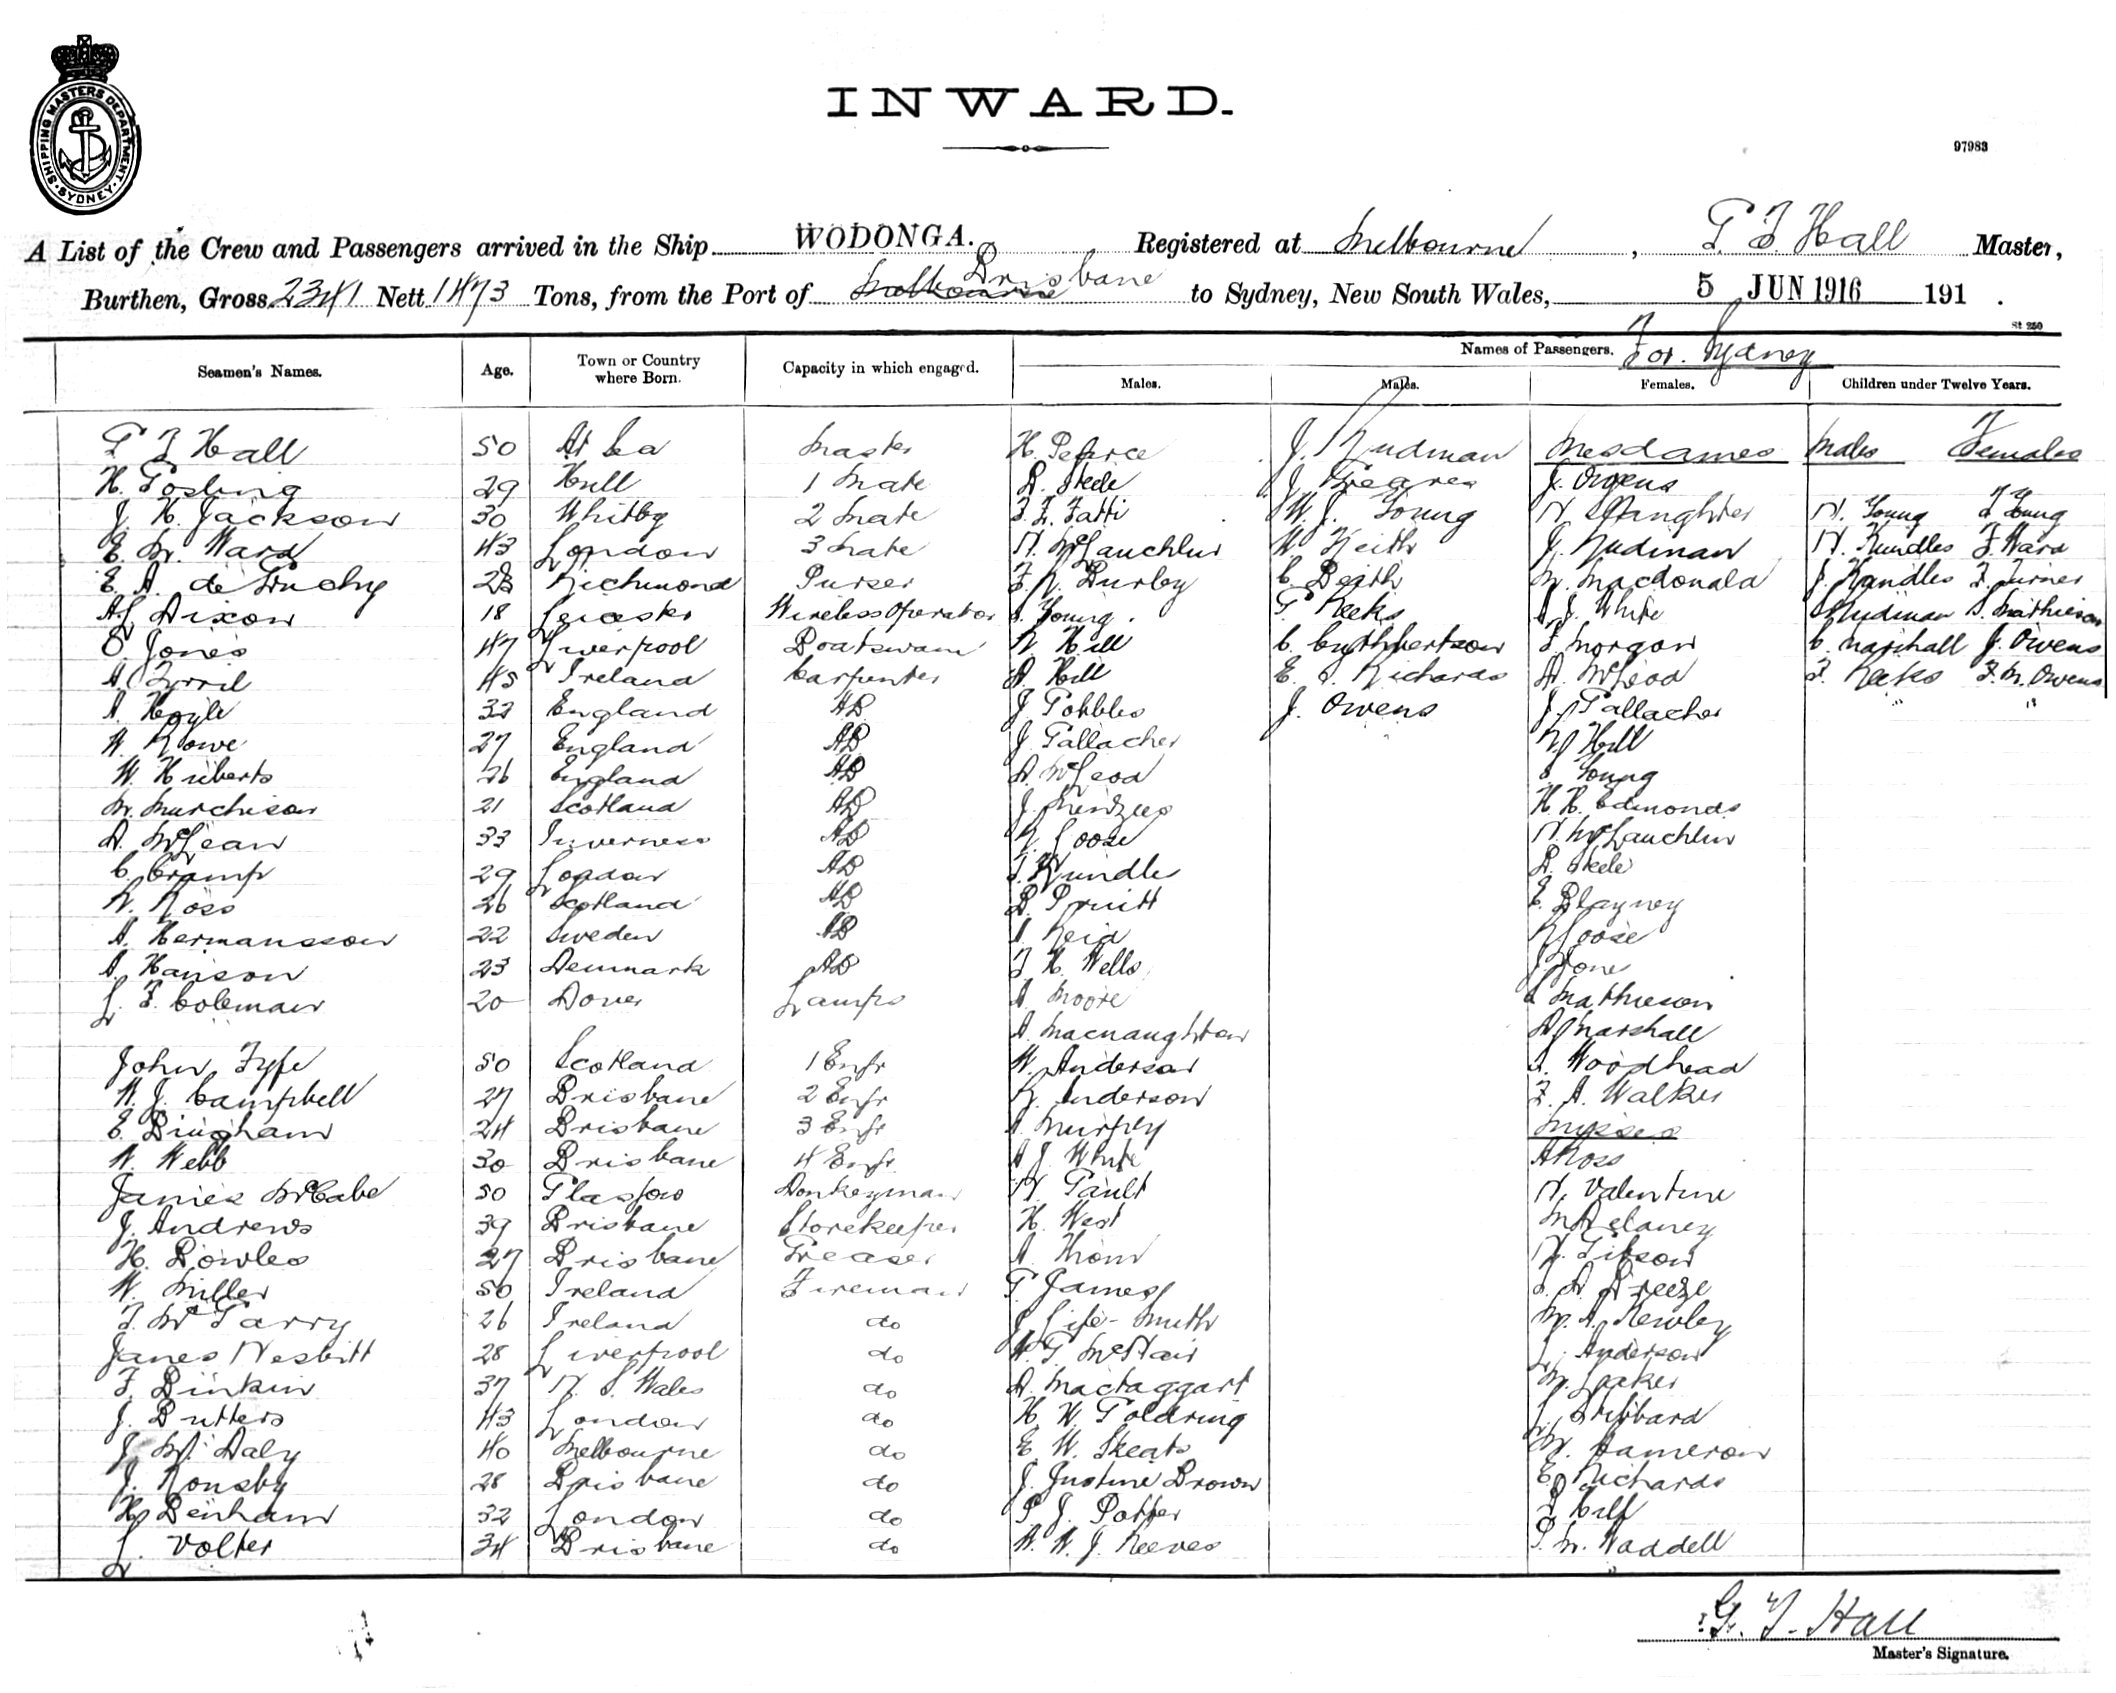 SHIPPING MASTERS DEPARTMENT. SYDNEY
INWARD.
97983
A List of the Crew and Passengers arrived in the Ship WODONGA. Registered at Melbourne, G. T. Hall Master,
Burthen, Gross 2341 Nett 1473 Tons, from the Port of Melbourne Brisbane to Sydney, New South Wales, 5 JUN 1916 191 .
St 250
Seamen's Names. Age. Town or Country where Born. Capacity in which engaged. Names of Passengers. For Sydney
Males. Males. Females. Children under Twelve Years.
G T Hall 50 At Sea Master H. Pearce J. Rudman Mesdames Males Females
H. Gosling 29 Hull 1 Mate D. Steele J. Greaves J. Owens
J. H. Jackson 30 Whitby 2 Mate W. J. Young N. Young F Young
E. M. Ward 43 London 3 Mate N. McLauchlin W Keith J. Rudman N. Rundles F. Ward
E. A. de Gruchy 28 Richmond Purser C. Beith M. Macdonald J. Randles F. Turner
A L Dixon 18 Leicester Wireless Operator S. Young. G. Keeks A J. White Rudman S. Mathieson
O. Jones 47 Liverpool Boatswain R. Hill C. Cuthbertson F Morgan C. Marshall J. Owens
A. 45 Ireland Carpenter A. Hill E. J. Richards A. McLeod F. Keeks F. M. Owens
A. Hoyle 33 England AB J Gobbles J. Owens J. Gallacher " "
W. Rowe 27 England AB J Gallacher Hill
W. Huberts 26 England AB A. McLeod S. Young
M. Murchison 21 Scotland AB J. Menzies H. H. Edmonds
A. McLean 33 Inverness AB R. Goose N. McLauchlin
C. Cramp 29 London AB J. Rundle D. Steele
R. Ross 26 Scotland AB D. Pruitt E. Blayney
A. Hermansson 22 Sweden AB A. Reid R Goose
A. Hanson 23 Denmark AB F. H. Wells
L. F. Coleman 20 Dover Lamps A. Moore Mathieson
A. Macnaughton A Marshall
John Fyfe 50 Scotland 1 Engr W. Anderson A. Woodhead
W. J. Campbell 27 Brisbane 2 Engr R. Anderson F. A. Walker
E. Bingham 24 Brisbane 3 Engr A Murphy Misses
W. Webb 30 Brisbane 4 Engr A J. White A Ross
James McCabe 50 Glasgow Donkeyman N. Gault N. Valentine
J. Andrews 39 Brisbane Storekeeper H. West M Delaney
H. Bowles 27 Brisbane Greaser A Thom N. Gibson
W. Miller 50 Ireland Fireman G. James S. A. Breeze
T. McGarry 26 Ireland do J Life-Smith M. A. Newley
James Nesbitt 28 Liverpool do W. G. McNair L. Anderson
F. Dinkin 37 N. S. Wales do A. Mactaggart M. Laker
J. Butters 43 London do H. W. Goldring L. Stibbard
J. M. Daly 40 Melbourne do E. W. Skeats M. Cameron
J. Ronsby 28 Brisbane do J. Justine Brown E. Richards
H. Denham 32 London do P J. Potter
L. Volter 34 Brisbane do W. W. J. Reeves P. M. Waddell
G. T. Hall
Master's Signature.